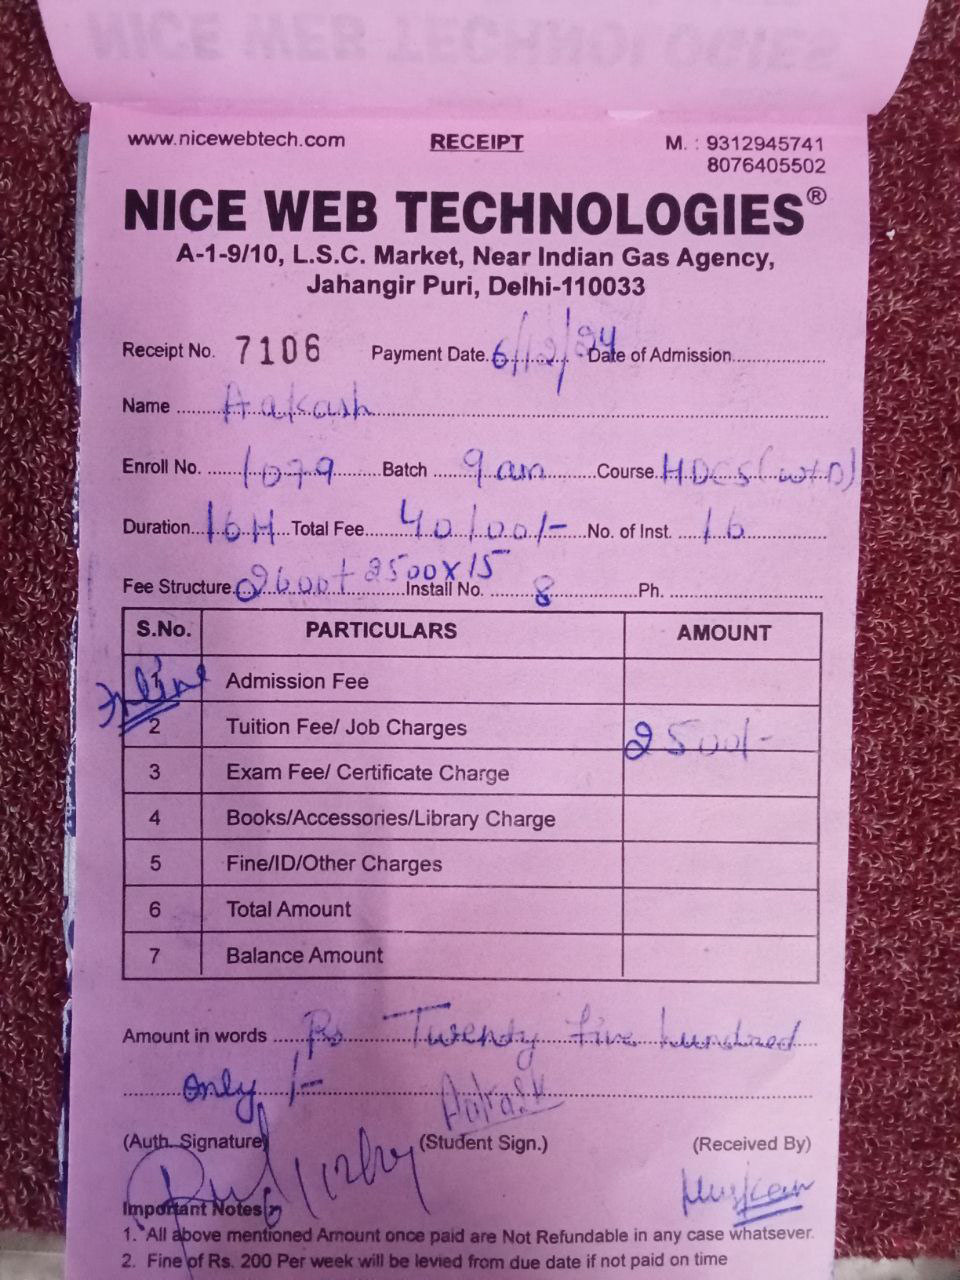 NICE WEB TECHNOLOGIES
www.nicewebtech.com RECEIPT M. : 9312945741
8076405502
NICE WEB TECHNOLOGIES®
A-1-9/10, L.S.C. Market, Near Indian Gas Agency,
Jahangir Puri, Delhi-110033
Receipt No. 7106 Payment Date. 6/12/24 Date of Admission
Name Aakash
Enroll No. 1079 Batch 9 am Course. HDCS(w+D)
Duration. 16H Total Fee 40100/- No. of Inst. 16
Fee Structure. 2600+2500x15 Install No. 8 Ph.
S.No. PARTICULARS AMOUNT
1 Admission Fee
Online
2 Tuition Fee/ Job Charges 2500/-
3 Exam Fee/ Certificate Charge
4 Books/Accessories/Library Charge
5 Fine/ID/Other Charges
6 Total Amount
7 Balance Amount
Amount in words Rs Twenty five hundred
only /-
Aakash
(Auth. Signature) (Student Sign.) (Received By)
Muskan
Important Notes :
1. All above mentioned Amount once paid are Not Refundable in any case whatsever.
2. Fine of Rs. 200 Per week will be levied from due date if not paid on time